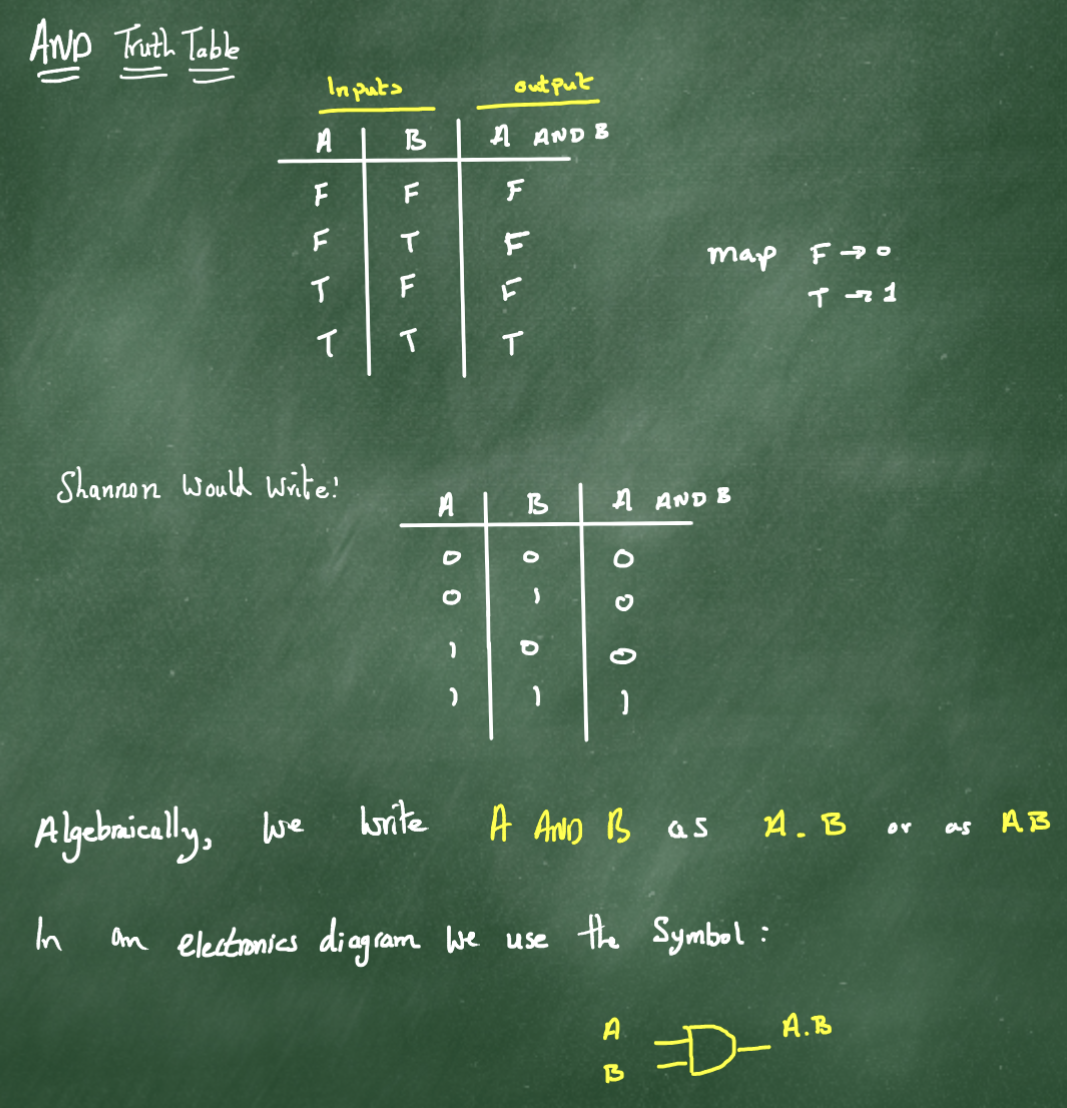 AND Truth Table
Inputs output
A B A AND B
F F F
F T F
T F F
T T T
map F → 0
T → 1
Shannon would write:
A B A AND B
0 0 0
0 1 0
1 0 0
1 1 1
Algebraically, we write A AND B as A . B or as AB
In an electronics diagram we use the Symbol :
A
B
A.B